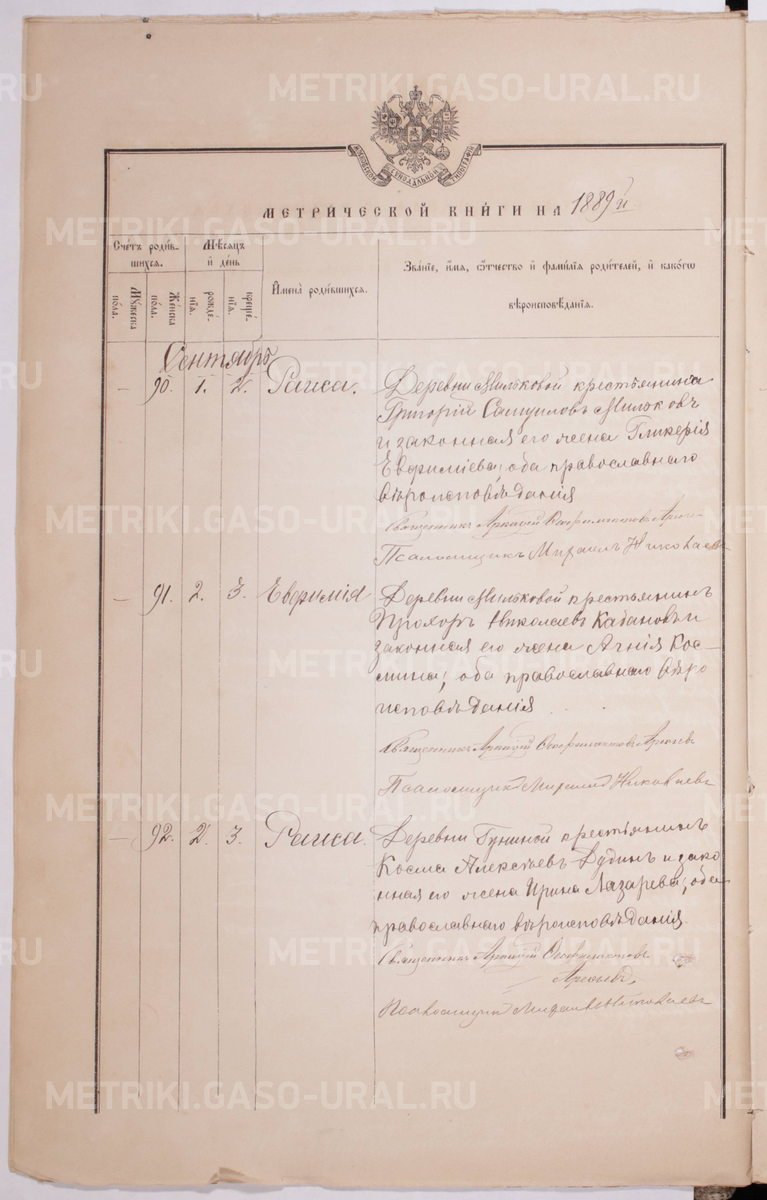 МОСКОВСКОЙ СѴНОДАЛЬНОЙ ТИПОГРАФІИ
МЕТРИЧЕСКОЙ КНИГИ НА 1889й
Счетъ родившихся.
Мѣсяцъ и день
Имена родившихся.
Званіе, имя, отчество и фамилія родителей, и какогѡ
вѣроисповѣданія.
Мужеска пола.
Женска пола.
рожденія.
крещенія.
Сентябрь
— 90. 1. 2. Раиса. Деревни Мильковой крестьянинъ
Григорій Самуиловъ Мильковъ
и законная его жена Гликерія
Евфиміева; оба православнаго
вѣроисповѣданія
Священникъ Аркадій
Псаломщикъ Михаилъ Николаевъ
— 91. 2. 3. Евфимія Деревни Мильковой крестьянинъ
Прохоръ Николаевъ Кабановъ и
законная его жена Агнія Кос-
мина; оба православнаго вѣро
исповѣданія
Священникъ Аркадій
Псаломщикъ Михаилъ Николаевъ
— 92. 2. 3. Раиса. Деревни Буниной крестьянинъ
Косма Алексѣевъ Дудинъ и зако
нная его жена Ирина Лазарева; оба
православнаго вѣроисповѣданія.
Священникъ Аркадій
Псаломщикъ Михаилъ Николаевъ
METRIKI.GASO-URAL.RU